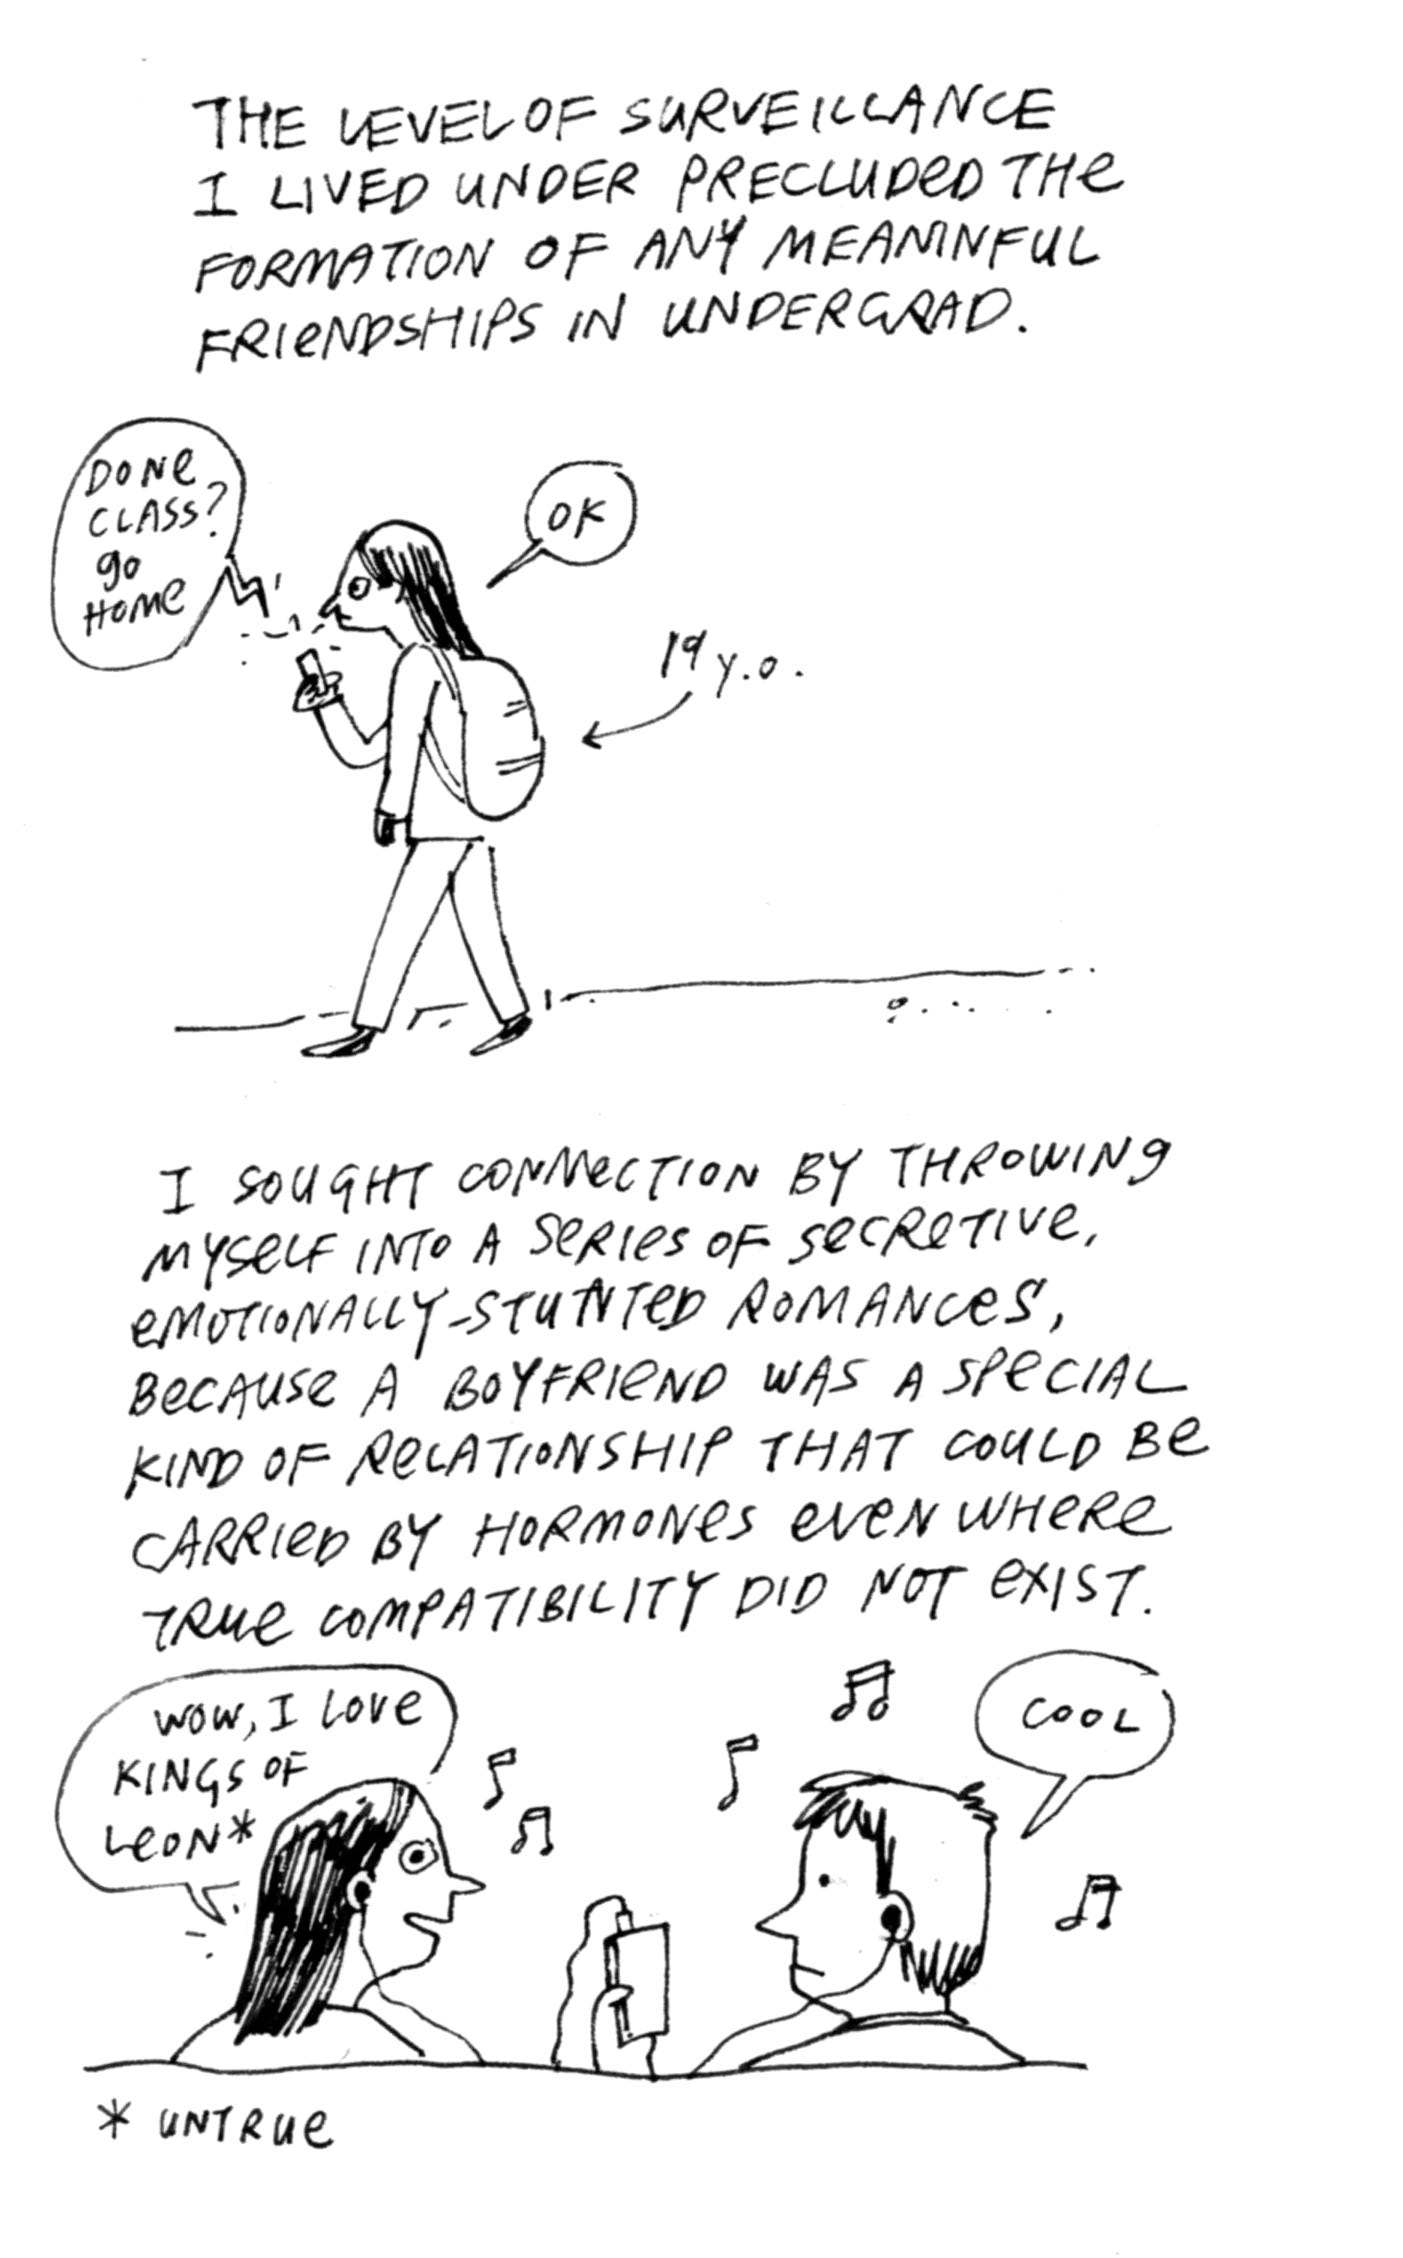 THE LEVEL OF SURVEILLANCE
I LIVED UNDER PRECLUDED THE
FORMATION OF ANY MEANINFUL
FRIENDSHIPS IN UNDERGRAD.
DONE
CLASS?
GO
HOME
OK
19 Y.O.
I SOUGHT CONNECTION BY THROWING
MYSELF INTO A SERIES OF SECRETIVE,
EMOTIONALLY-STUNTED ROMANCES,
BECAUSE A BOYFRIEND WAS A SPECIAL
KIND OF RELATIONSHIP THAT COULD BE
CARRIED BY HORMONES EVEN WHERE
TRUE COMPATIBILITY DID NOT EXIST.
WOW, I LOVE
KINGS OF
LEON*
COOL
* UNTRUE